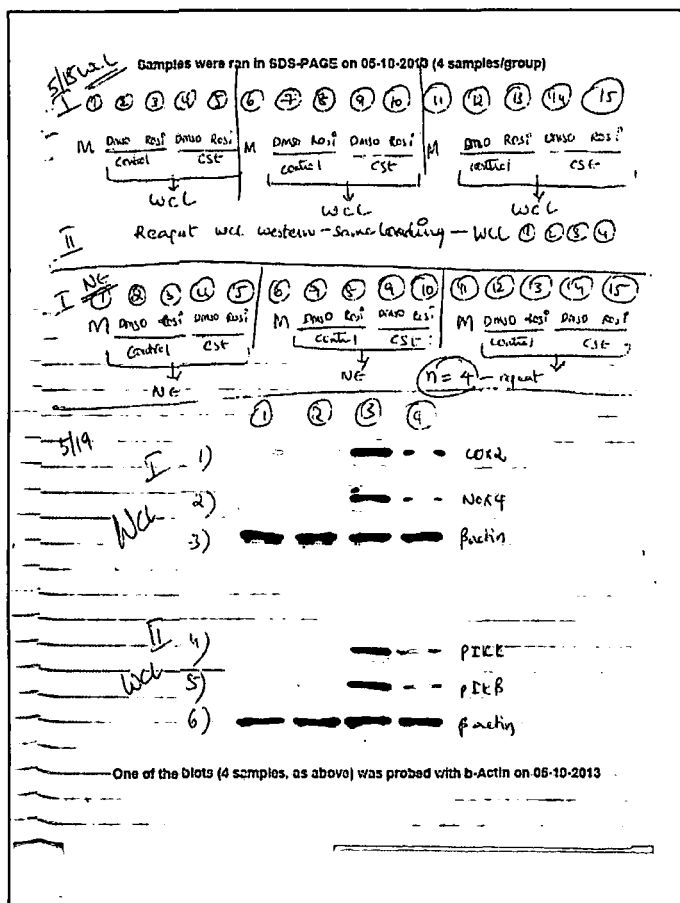 Samples were ran in SDS-PAGE on 05-10-2013 (4 samples/group)
5/15 WCL
I ① ② ③ ④ ⑤ ⑥ ⑦ ⑧ ⑨ ⑩ ⑪ ⑫ ⑬ ⑭ ⑮
M DMSO Rosi DMSO Rosi M DMSO Rosi DMSO Rosi M DMSO Rosi DMSO Rosi
Control CSE Control CSE Control CSE
WCL WCL WCL
II Repeat WCL Western - Same loading - WCL ① ② ③ ④
NE
I ① ② ③ ④ ⑤ ⑥ ⑦ ⑧ ⑨ ⑩ ⑪ ⑫ ⑬ ⑭ ⑮
M DMSO Rosi DMSO Rosi M DMSO Rosi DMSO Rosi M DMSO Rosi DMSO Rosi
Control CSE Control CSE Control CSE
NE NE n = 4 - repeat
① ② ③ ④
5/19
I 1) COX2
2) NOX4
WCL
3) βactin
II 4) pIKK
WCL 5) pIkB
6) β actin
One of the blots (4 samples, as above) was probed with b-Actin on 05-10-2013